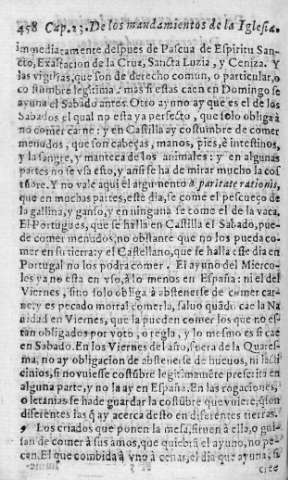 458 Cap. 23. De los mandamientos de la Iglesia.
immediatamente despues de Pascua de Espiritu San-
cto, Exaltacion de la Cruz, Sancta Luzia, y Ceniza. Y
las vigilias, que son de derecho comun, o particular, o
costumbre legitima: mas si estas caen en Domingo se
ayuna el Sabado antes. Otro ayuno ay que es el de los
Sabados el qual no esta ya perfecto, que solo obliga à
no comer carne: y en Castilla ay costumbre de comer
menudos, que son cabeças, manos, pies, è intestinos,
y la sangre, y manteca de los animales: y en algunas
partes no se vsa esto, y ansi se ha de mirar mucho la cos
tũbre. Y no vale aqui el argumento à paritate rationis,
que en muchas partes, este dia, se come el pescueço de
la gallina, y ganso, y en ninguna se come el de la vaca.
El Portugues, que se halla en Castilla el Sabado, pue-
de comer menudos, no obstante que no los pueda co-
mer en su tierra: y el Castellano, que se halla este dia en
Portugal no los podra comer. El ayuno del Mierco-
les ya no esta en vso, à lo menos en España: ni el del
Viernes, sino solo obliga à abstenerse de comer car-
ne, y es pecado mortal comerla, saluo quãdo cae la Na
uidad en Viernes, que la pueden comer los que no es-
tan obligados por voto, o regla, y lo mesmo es si cae
en Sabado. En los Viernes del año, fuera de la Quares-
ma, no ay obligacion de abstenerse de hueuos, ni lacti-
cinios, si no vuiesse costũbre legitimamẽte prescrita en
alguna parte, y no la ay en España. En las rogaciones,
o letanias se hade guardar la costũbre que vuiere, q̃ son
diferentes las q̃ ay acerca desto en diferentes tierras.
9 Los criados que ponen la mesa, siruen à ella, o gui-
san de comer à sus amos, que quiebrã el ayuno, no pe-
can. El que combida à vno à cenar, el dia que ayuna, si